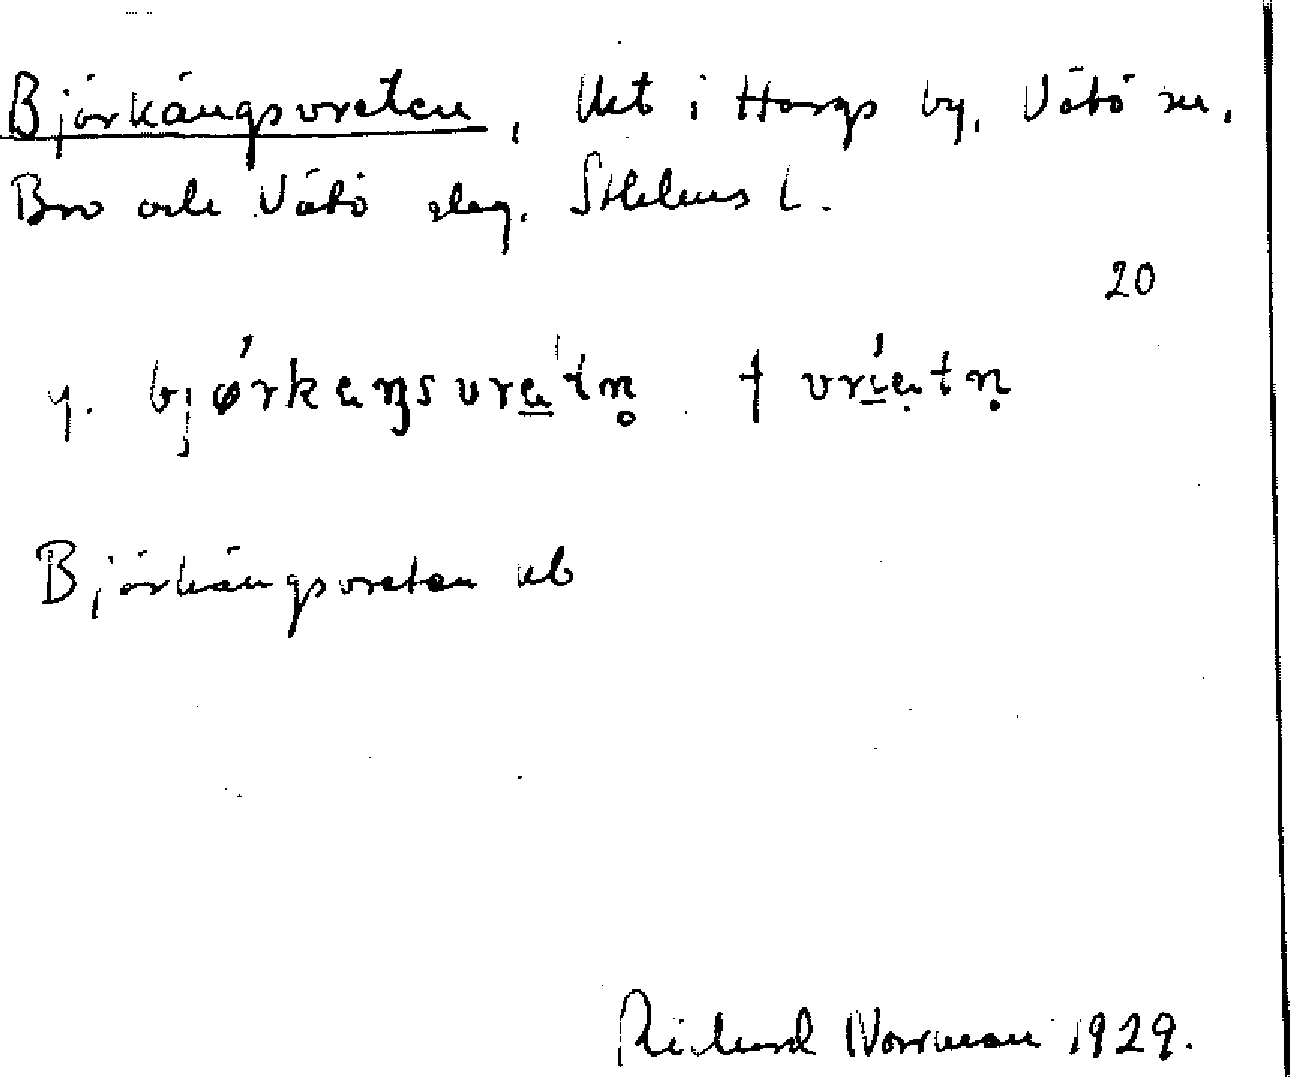 Björkängsvreten, Ukt i Hargs by, Vätö sn,
Bro och Vätö slag. Sthlms l.
20
y. bjǿrkeŋsvre̲'tn̥ † vrí̲ẹtṇ
Björkängsvreten ub
Richard Norrman 1929.